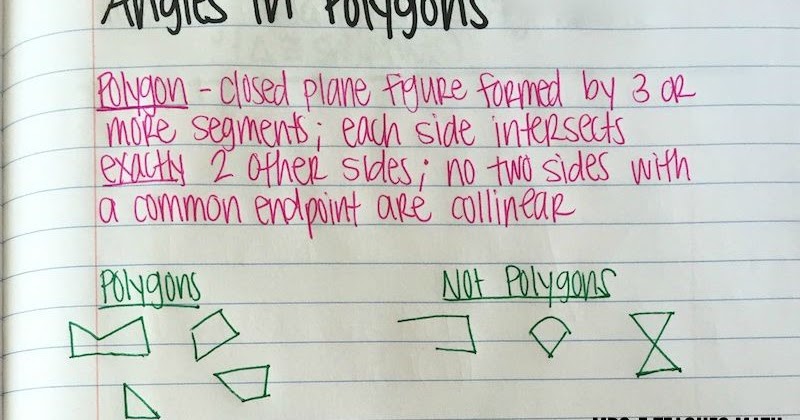 Angles in Polygons
Polygon - closed plane figure formed by 3 or
more segments; each side intersects
exactly 2 other sides; no two sides with
a common endpoint are collinear
Polygons
Not Polygons